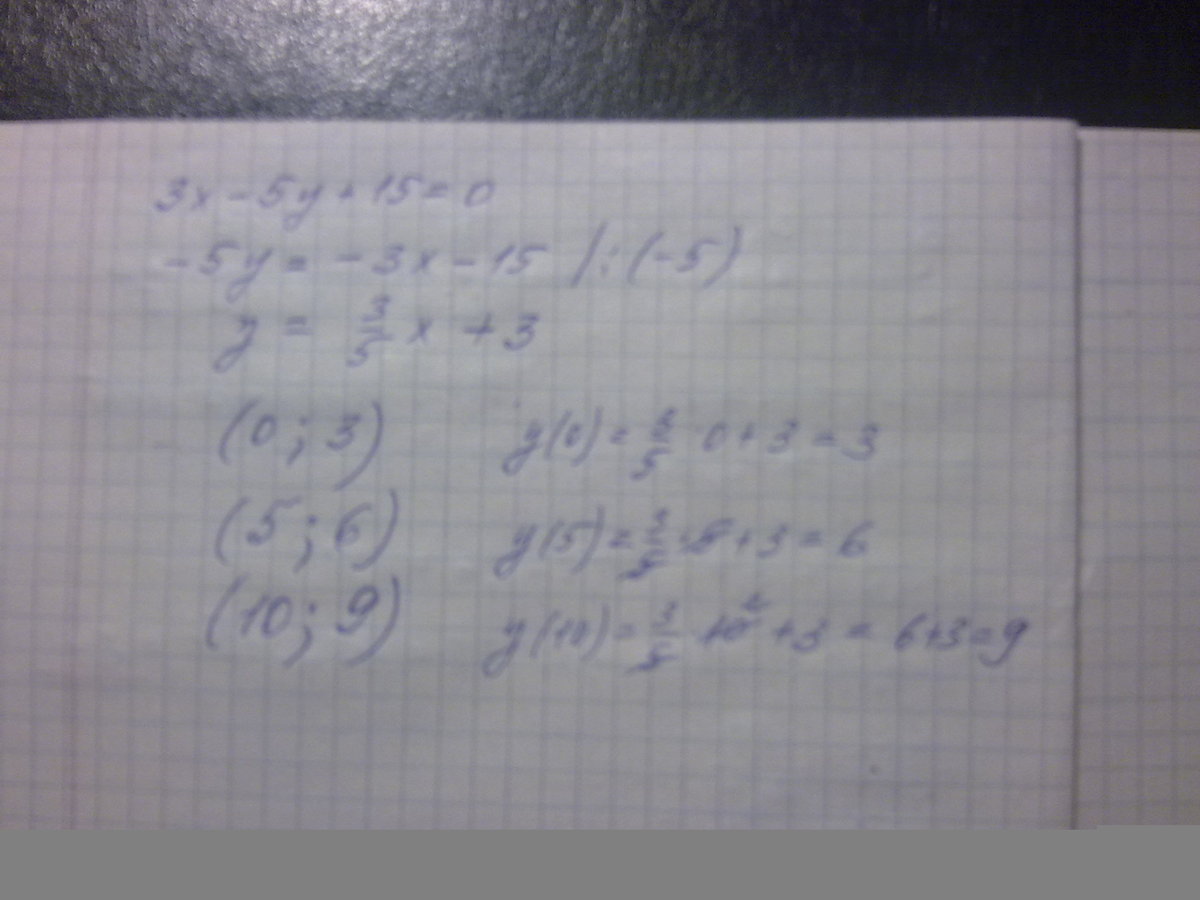 3x - 5y + 15 = 0
-5y = -3x - 15 /:(-5)
y = 3/5 x + 3
(0; 3) y(0) = 3/5 0 + 3 = 3
(5; 6) y(5) = 3/5 · 5 + 3 = 6
(10; 9) y(10) = 3/5 10 2 + 3 = 6+3=9